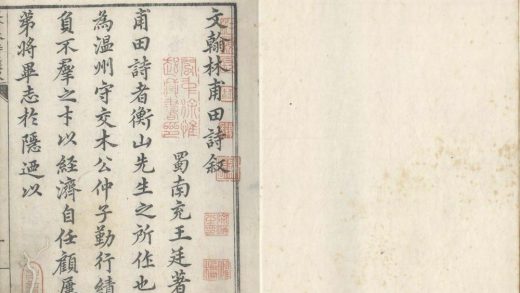 文翰林甫田詩叙
蜀南充王廷著
甫田詩者衡山先生之所作也
為温州守交木公仲子勤行績
負不羣之才以經濟自任顧屢
第將畢志於隱迺以